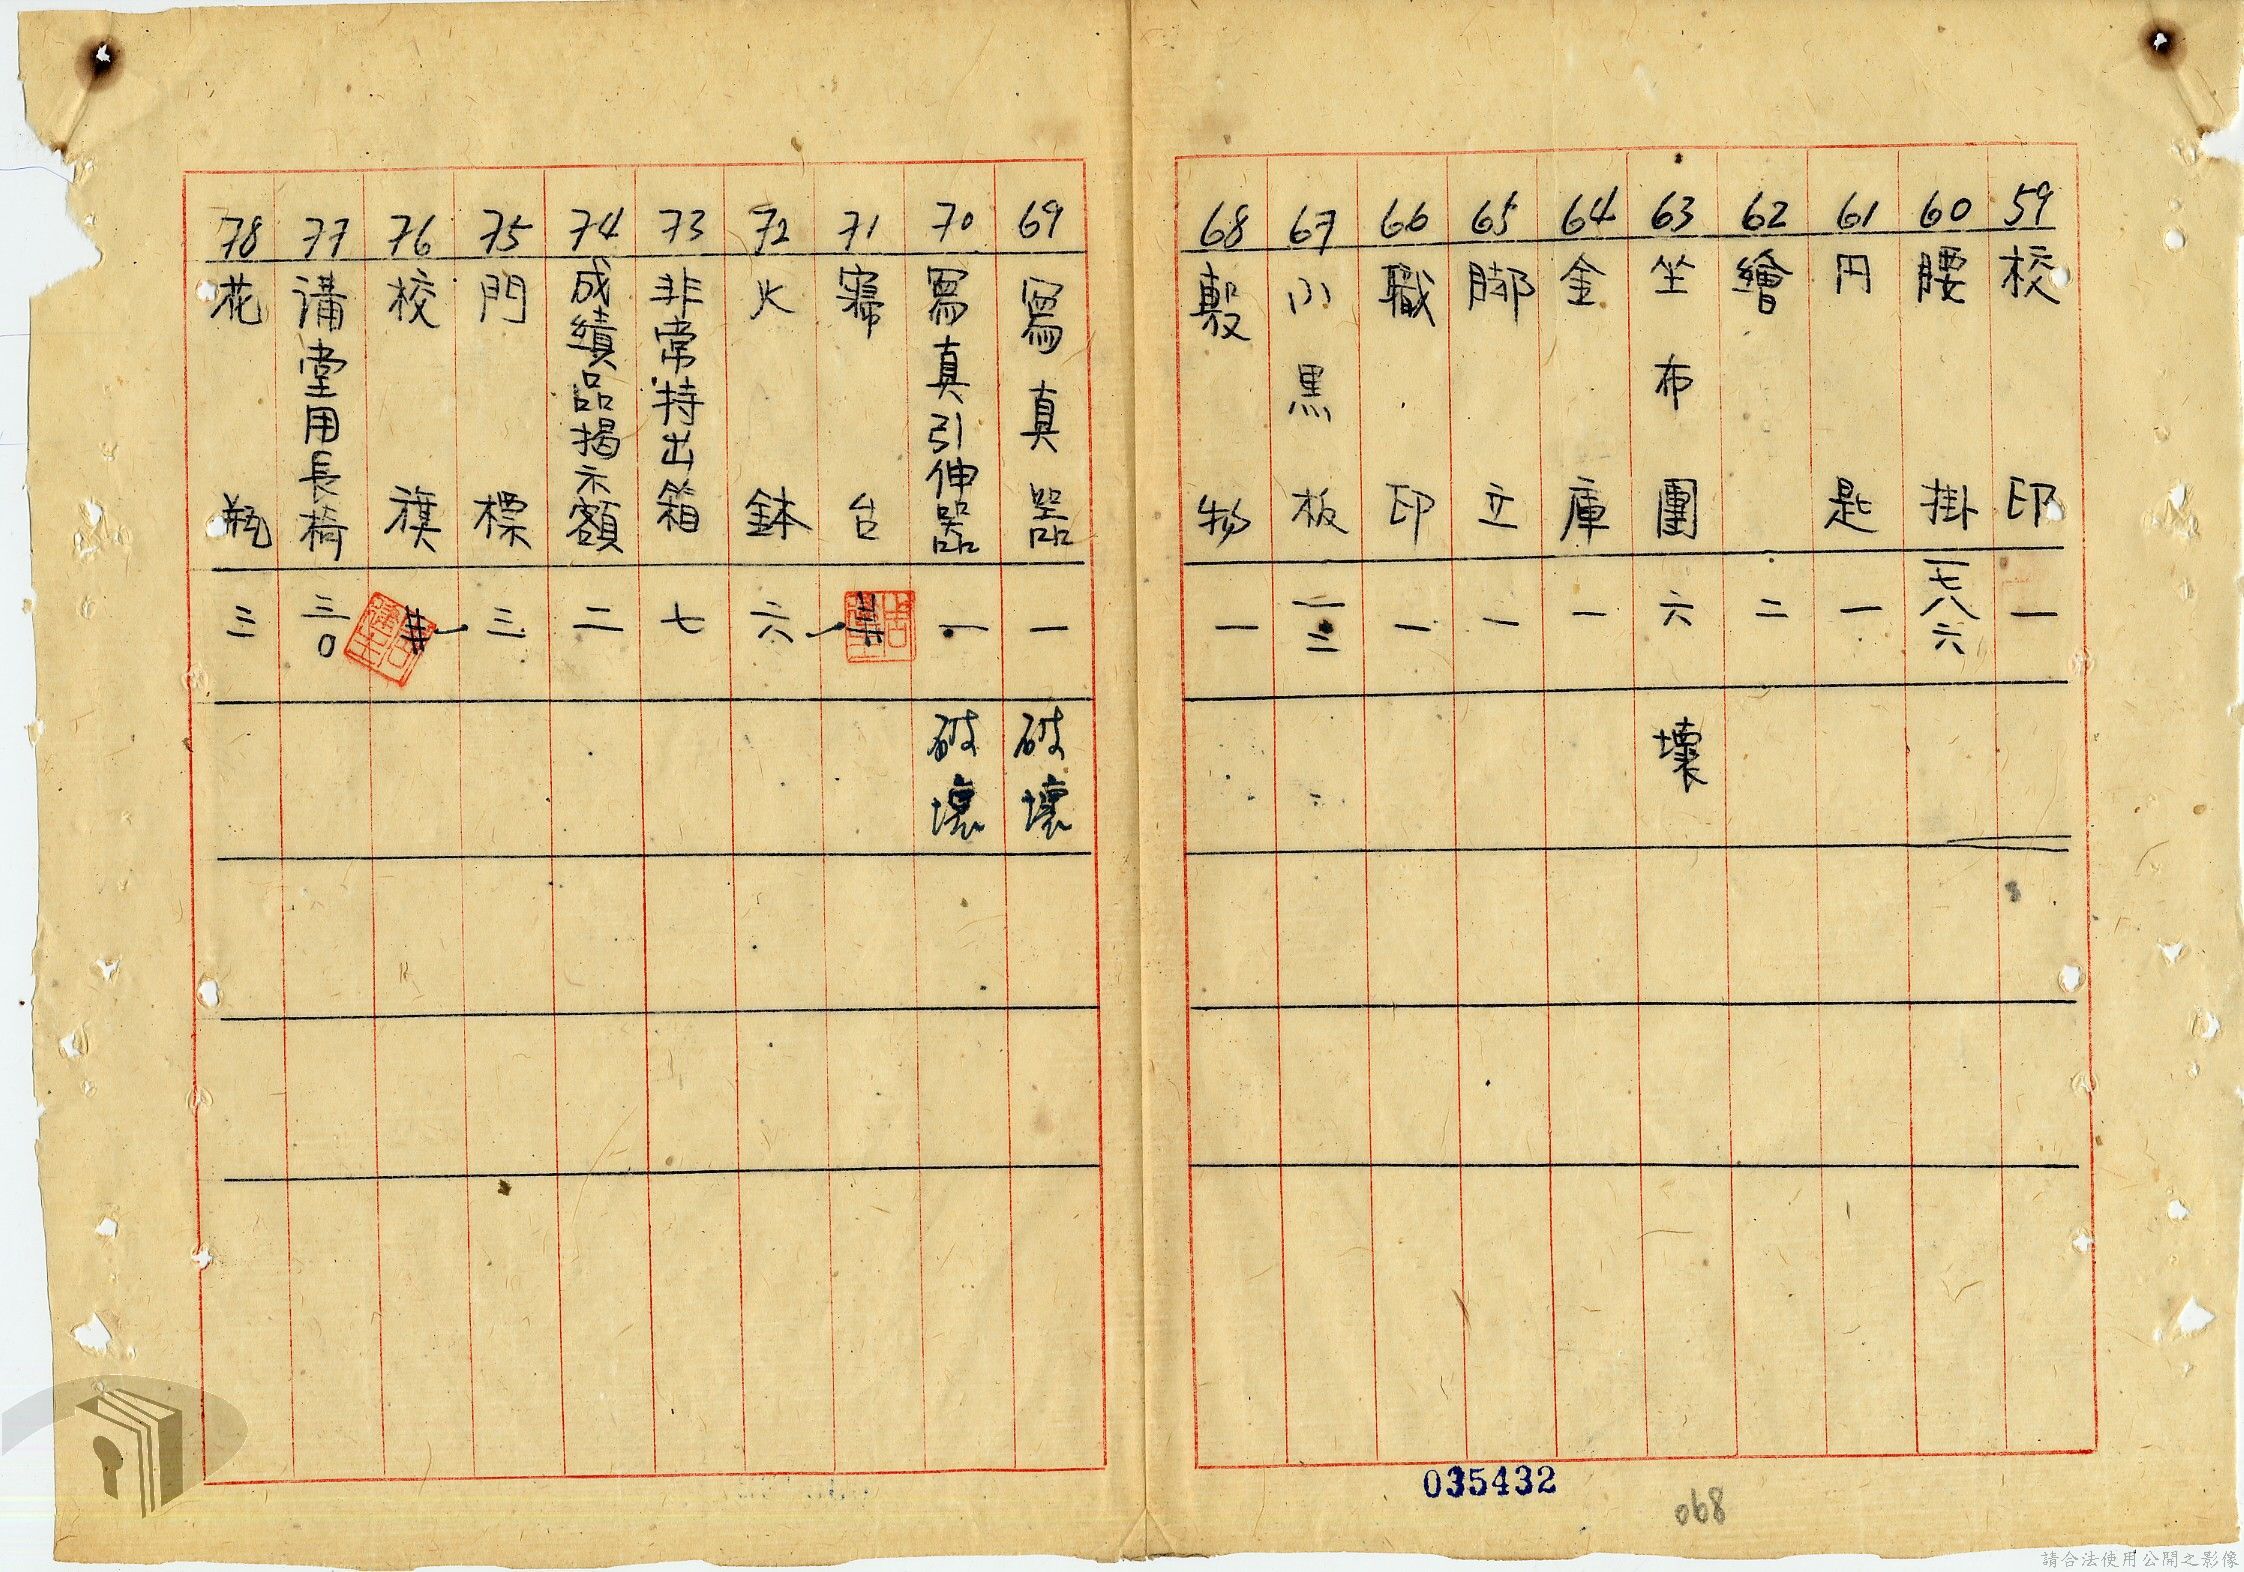 59 校印 一
60 腰掛 一七八六
61 円匙 一
62 繪 二
63 坐布團 六 壞
64 金庫 一
65 脚立 一
66 職印 一
67 小黑板 一三
68 敷物 一
69 寫真器 一 破壞
70 寫真引伸器 一 破壞
71 寢台
72 火鉢 六
73 非常持出箱 七
74 成績品揭示額 二
75 門標 三
76 校旗 一
77 講堂用長椅 三0
78 花瓶 三
035432
068
請合法使用公開之影像